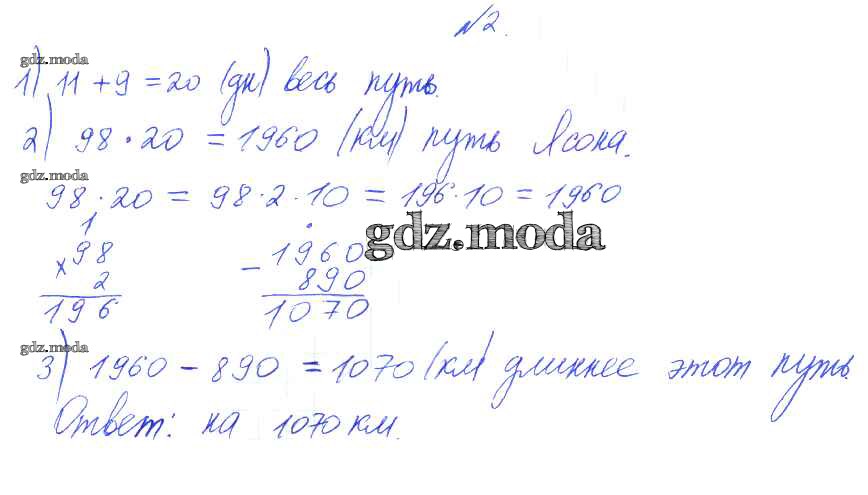 №2.
gdz.moda
1) 11 + 9 = 20 (дн) весь путь.
2) 98 · 20 = 1960 (км) путь Ясона.
gdz.moda
98 · 20 = 98 · 2 · 10 = 196 · 10 = 1960
gdz.moda
1
× 98
2
196
− 1960
890
1070
gdz.moda
3) 1960 − 890 = 1070 (км) длиннее этот путь.
Ответ: на 1070 км.